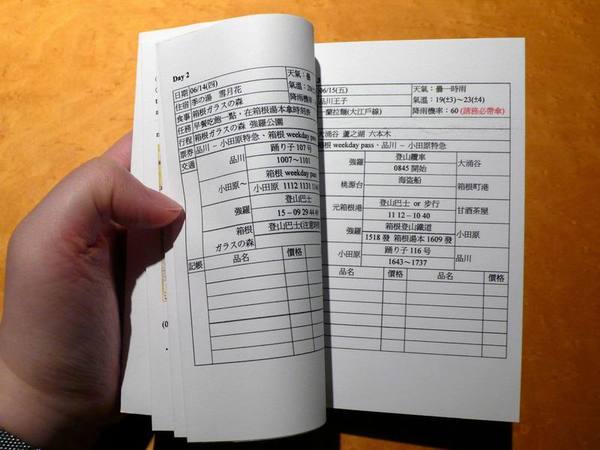 Day 2
日期 06/14(四) 天氣：曇
住宿 季の湯 雪月花 氣溫：20
食事 箱根ガラスの森 降雨機率
任務 早餐吃飽一點，在箱根湯本拿時刻表
行程 箱根ガラスの森 強羅公園
票券 品川－小田原特急、箱根 weekday pass
交通 品川 踊り子 107 號
1007～1101
小田原～ 箱根 weekday pass
小田原 1112 1131 114
強羅 登山巴士
15－09 29 44 49
箱根 登山巴士(注意時
ガラスの森
記帳 品名 價格
06/15(五) 天氣：曇一時雨
品川王子 氣溫：19(±3)~23(±4)
一蘭拉麵(大江戶線) 降雨機率：60 (請務必帶傘)
大涌谷 蘆之湖 六本木
箱根 weekday pass、品川－小田原特急
強羅 登山纜車 大涌谷
0845 開始
桃源台 海盜船 箱根町港
元箱根港 登山巴士 or 步行 甘酒茶屋
11 12－10 40
強羅 箱根登山鐵道 小田原
1518 發 箱根湯本 1609 發
小田原 踊り子 116 號 品川
1643～1737
品名 價格 品名 價格